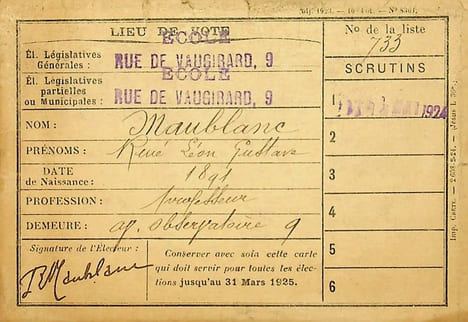 Adj. 1924.
LIEU DE VOTE
No de la liste
733
ÉCOLE
Él. Législatives
Générales :
RUE DE VAUGIRARD, 9
SCRUTINS
ÉCOLE
Él. Législatives
partielles
ou Municipales :
RUE DE VAUGIRARD, 9
1
MAI 1924
NOM :
Maublanc
2
PRÉNOMS :
René Léon Gustave
3
DATE
de Naissance :
1891
PROFESSION :
Professeur
4
DEMEURE :
av. Observatoire 9
5
Signature de l'Électeur :
R Maublanc
Conserver avec soin cette carte
qui doit servir pour toutes les élec-
tions jusqu'au 31 Mars 1925.
6